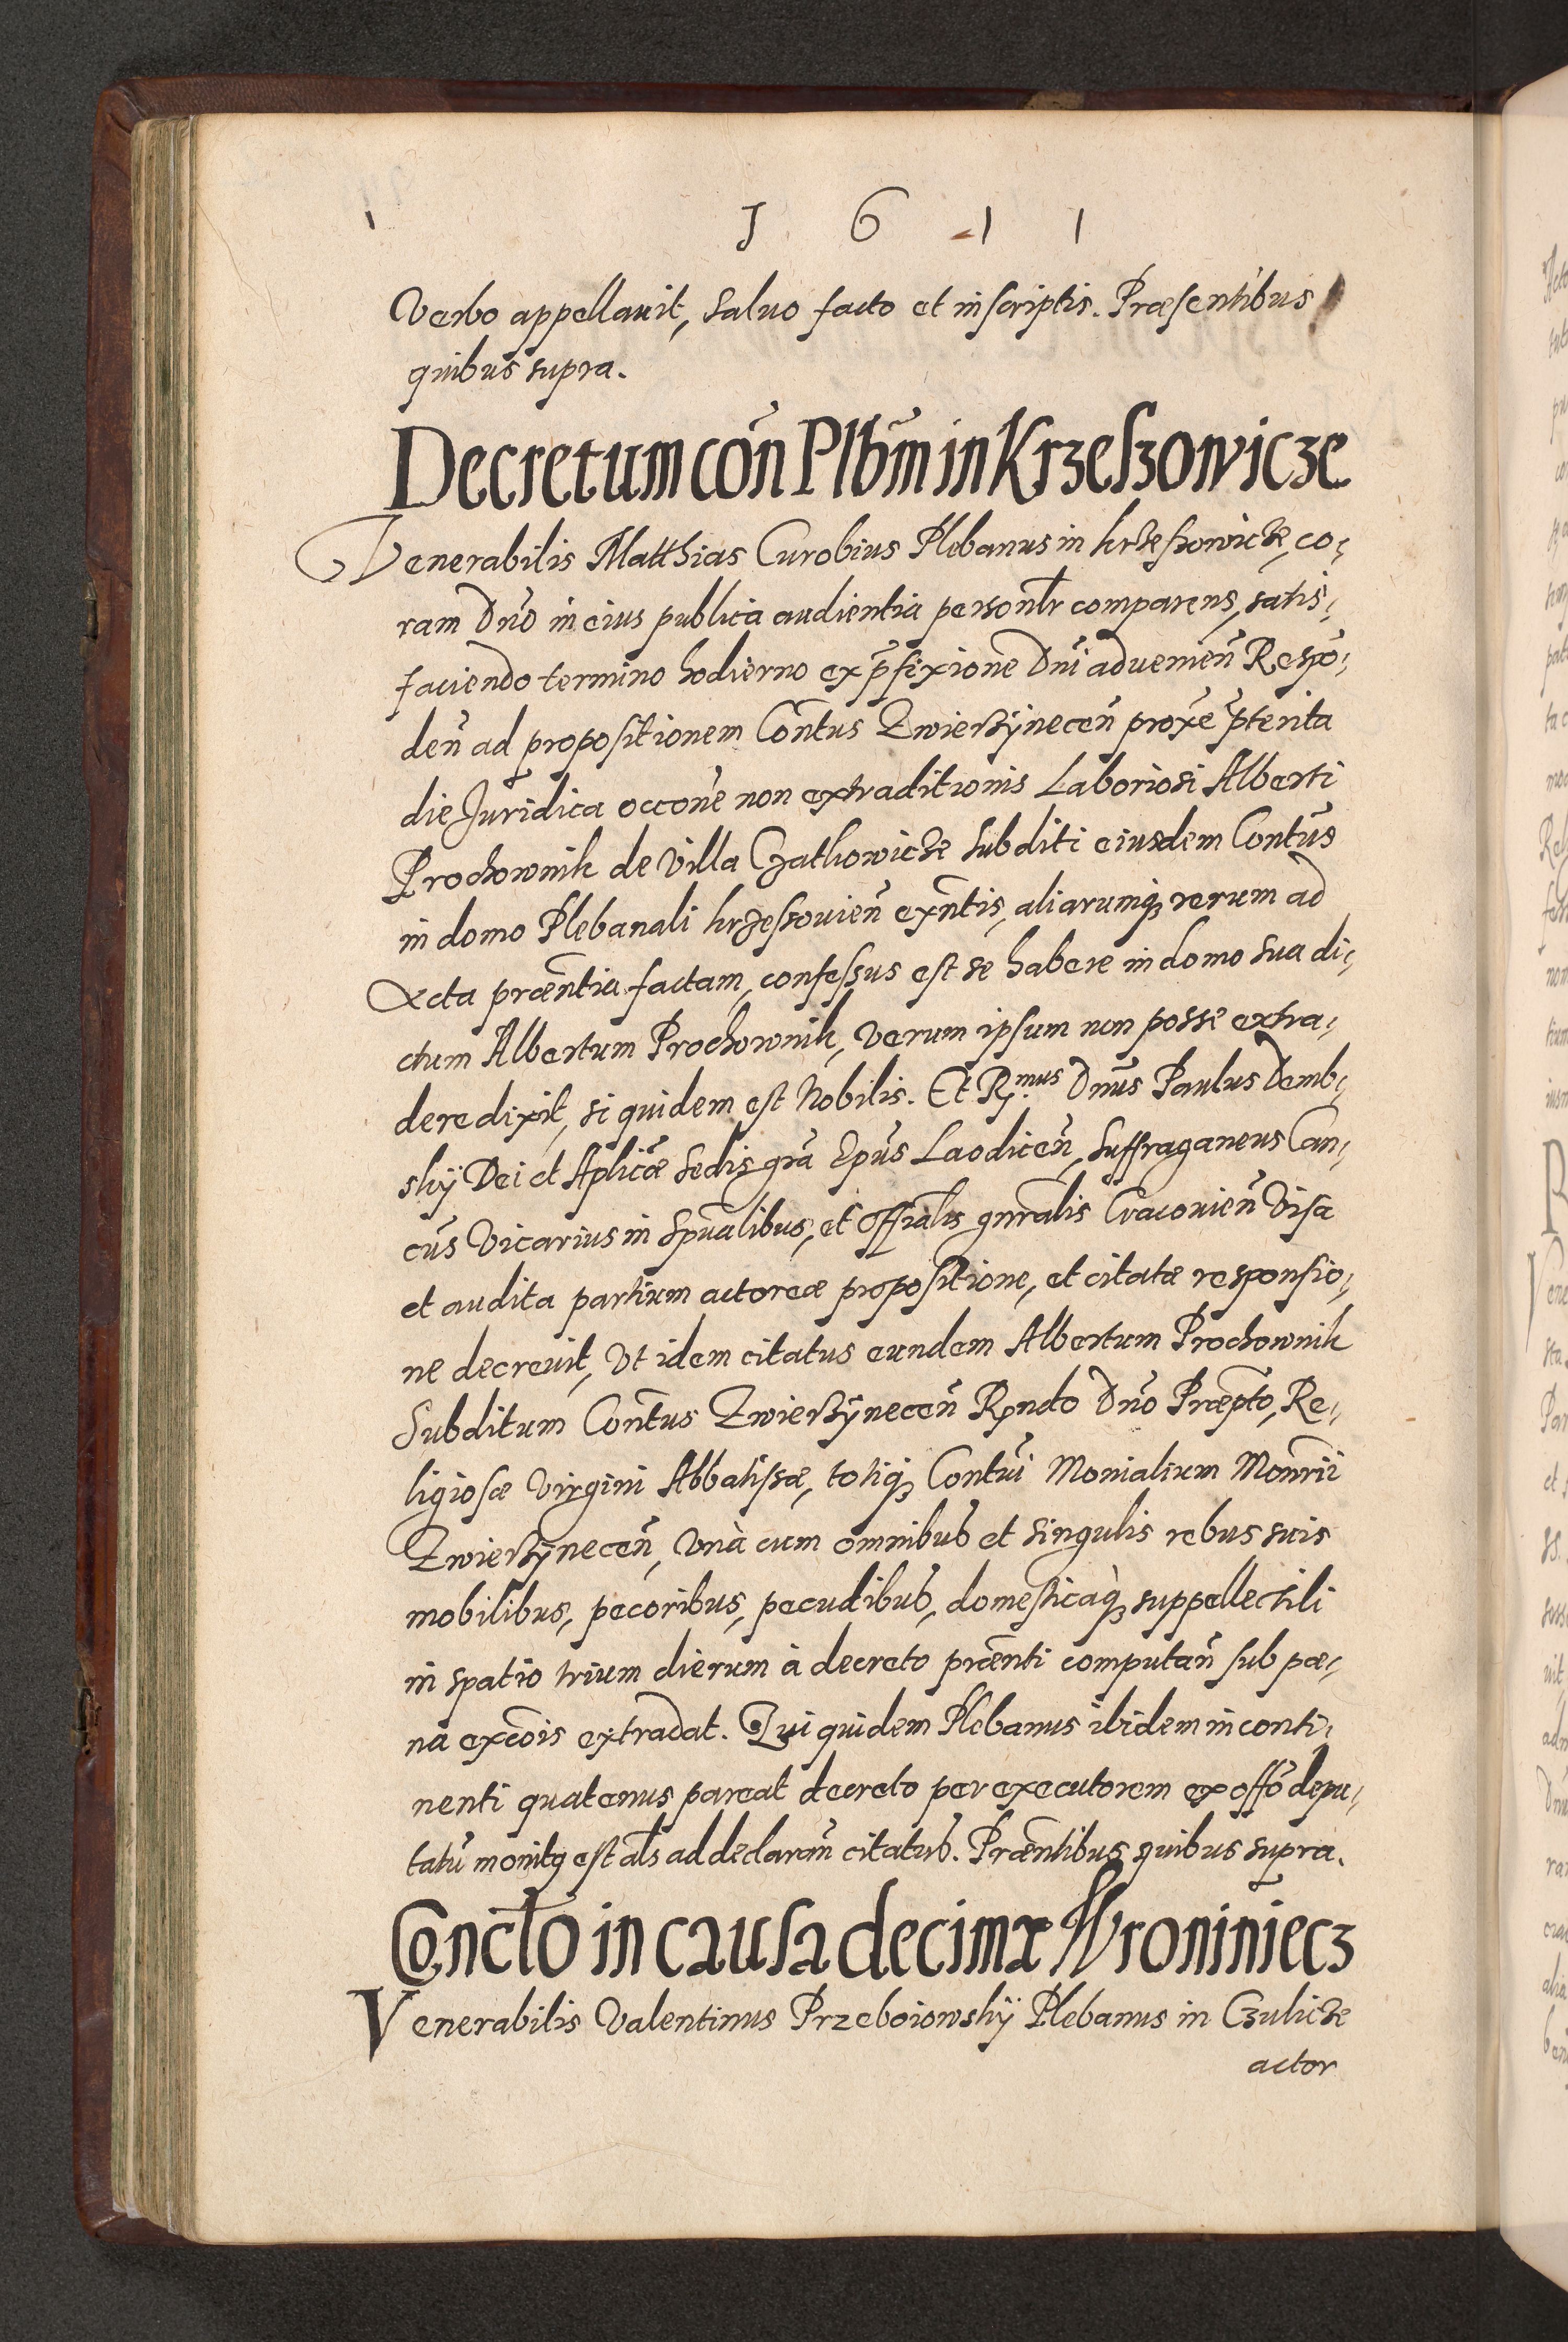 1 6 1 1
Verbo appellauit, saluo facto et in scriptis. Præsentibus
quibus supra.
Decretum con̄ Plb̄m in Krzeszowicze
Venerabilis Matthias Curobius Plebanus in krzeszowicze, co,
ram Dn̄o in eius publica audientia personl̄r comparens, satis,
faciendo termino hodierno ex p̄fixione Dn̄i aduenien̄ Respō,
den̄ ad propositionem Con̄tus Zwierzÿnecen̄ prox̄e p̄terita
die Juridica occon̄e non extraditionis Laboriosi Alberti
Prochownik de Villa Czatkowicze subditi eiusdem Con̄tus
in domo Plebanali krzessouien̄ exn̄tis, aliarumq₃ rerum ad
Acta præn̄tia factam, confessus est se habere in domo sua di,
ctum Albertum Prochownik, verum ipsum non posse extra,
dere dixit, si quidem est Nobilis. Et R.mus Dn̄us Paulus Demb,
skÿ Dei et Aplicǣ sedis grā Ep̄us Laodicen̄, Suffraganeus Can,
cūs Vicarius in Spūalibus, et Offialis gnr̄alis Cracouien̄ Visa
et audita partium actoreæ propositione, et citatæ responsio,
ne decreuit, Vt idem citatus eundem Albertum Prochownik
Subditum Con̄tus Zwierzÿnecen̄ Rn̄do Dn̄o Præp̄to, Re,
ligiosæ Virgini Abbatissæ, totiq₃ Contūi Monialium Mon̄rii
Zwierzÿnecen̄, Vnà cum omnibus et singulis rebus suis
mobilibus, pecoribus, pecudibus, domesticàq₃ suppellectili
in spatio trium dierum à decreto præn̄ti computan̄ sub pæ,
na exc̄ois extradat. Qui quidem Plebanus ibidem in conti,
nenti quatenus pareat decreto per executorem ex offō depu,
tatū monitꝰ est als̄ ad declaran̄ citatus. Præn̄tibus quibus supra.
Conclto in causa decimæ Wroniniecz
Venerabilis Valentinus Przeboiowskÿ Plebanus in Czulicze
actor